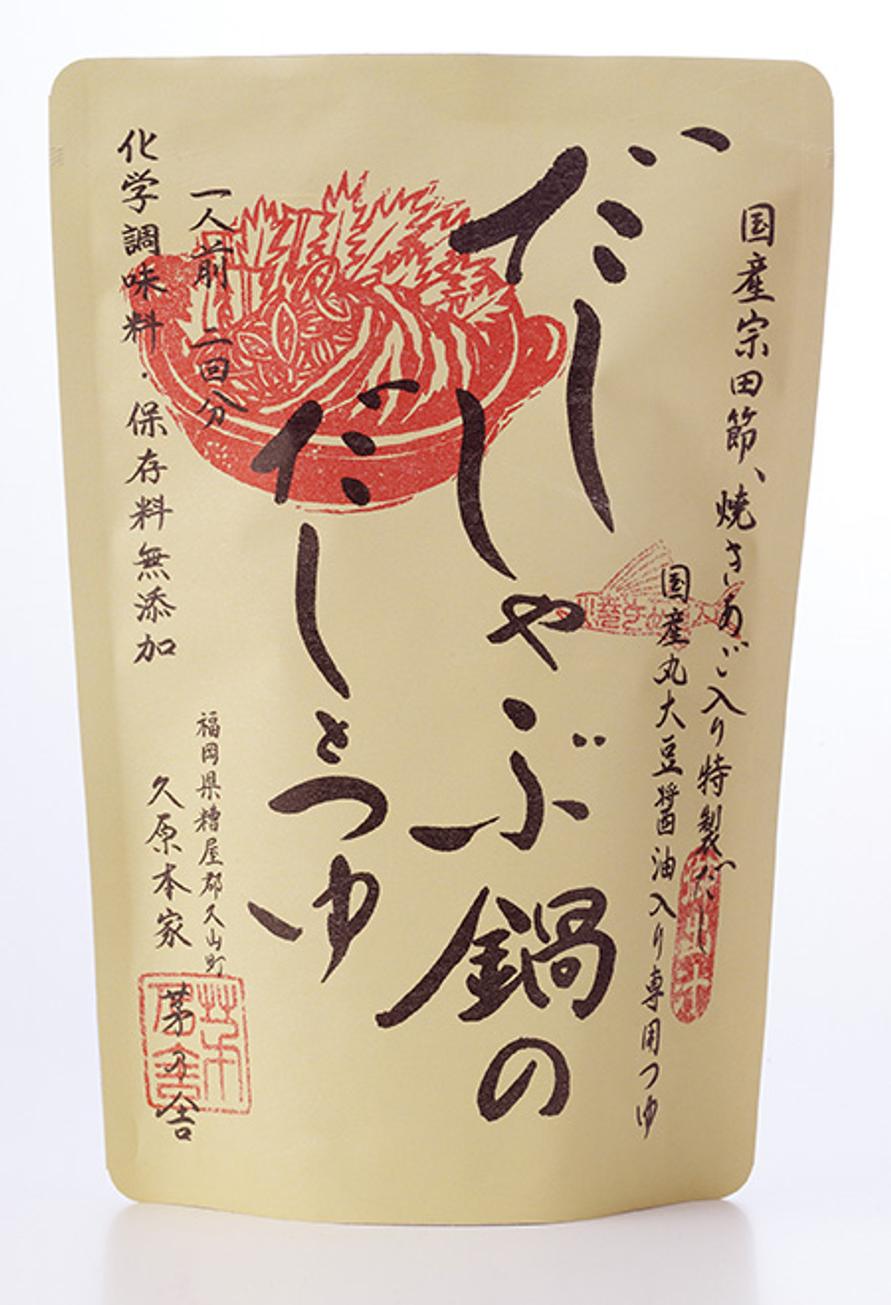 国産宗田節、焼きあご入り特製だし
国産丸大豆醤油入り専用つゆ
だし
しゃぶ鍋の
だしとつゆ
一人前 二回分
化学調味料・保存料無添加
福岡県糟屋郡久山町
久原本家 茅乃舎